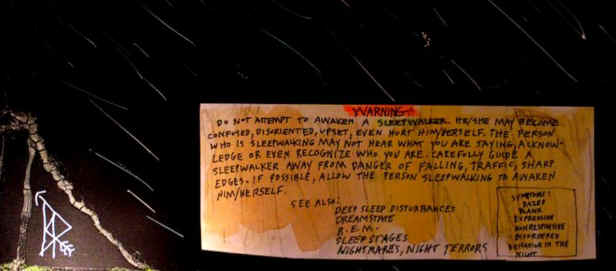 WARNING
DO NOT ATTEMPT TO AWAKEN A SLEEPWALKER. HE/SHE MAY BECOME
CONFUSED, DISORIENTED, UPSET, EVEN HURT HIM/HERSELF. THE PERSON
WHO IS SLEEPWALKING MAY NOT HEAR WHAT YOU ARE SAYING, ACKNOW-
LEDGE OR EVEN RECOGNIZE WHO YOU ARE. CAREFULLY GUIDE A
SLEEPWALKER AWAY FROM DANGER OF FALLING, TRAFFIC, SHARP
EDGES. IF POSSIBLE, ALLOW THE PERSON SLEEPWALKING TO AWAKEN
HIM/HERSELF.
SEE ALSO:
DEEP SLEEP DISTURBANCES
DREAMSTATE
R.E.M.
SLEEP STAGES
NIGHTMARES, NIGHT TERRORS
SYMPTOMS:
DAZED
BLANK
EXPRESSION
NONRESPONSIVE
DISORDERED
BEHAVIOR IN THE
NIGHT